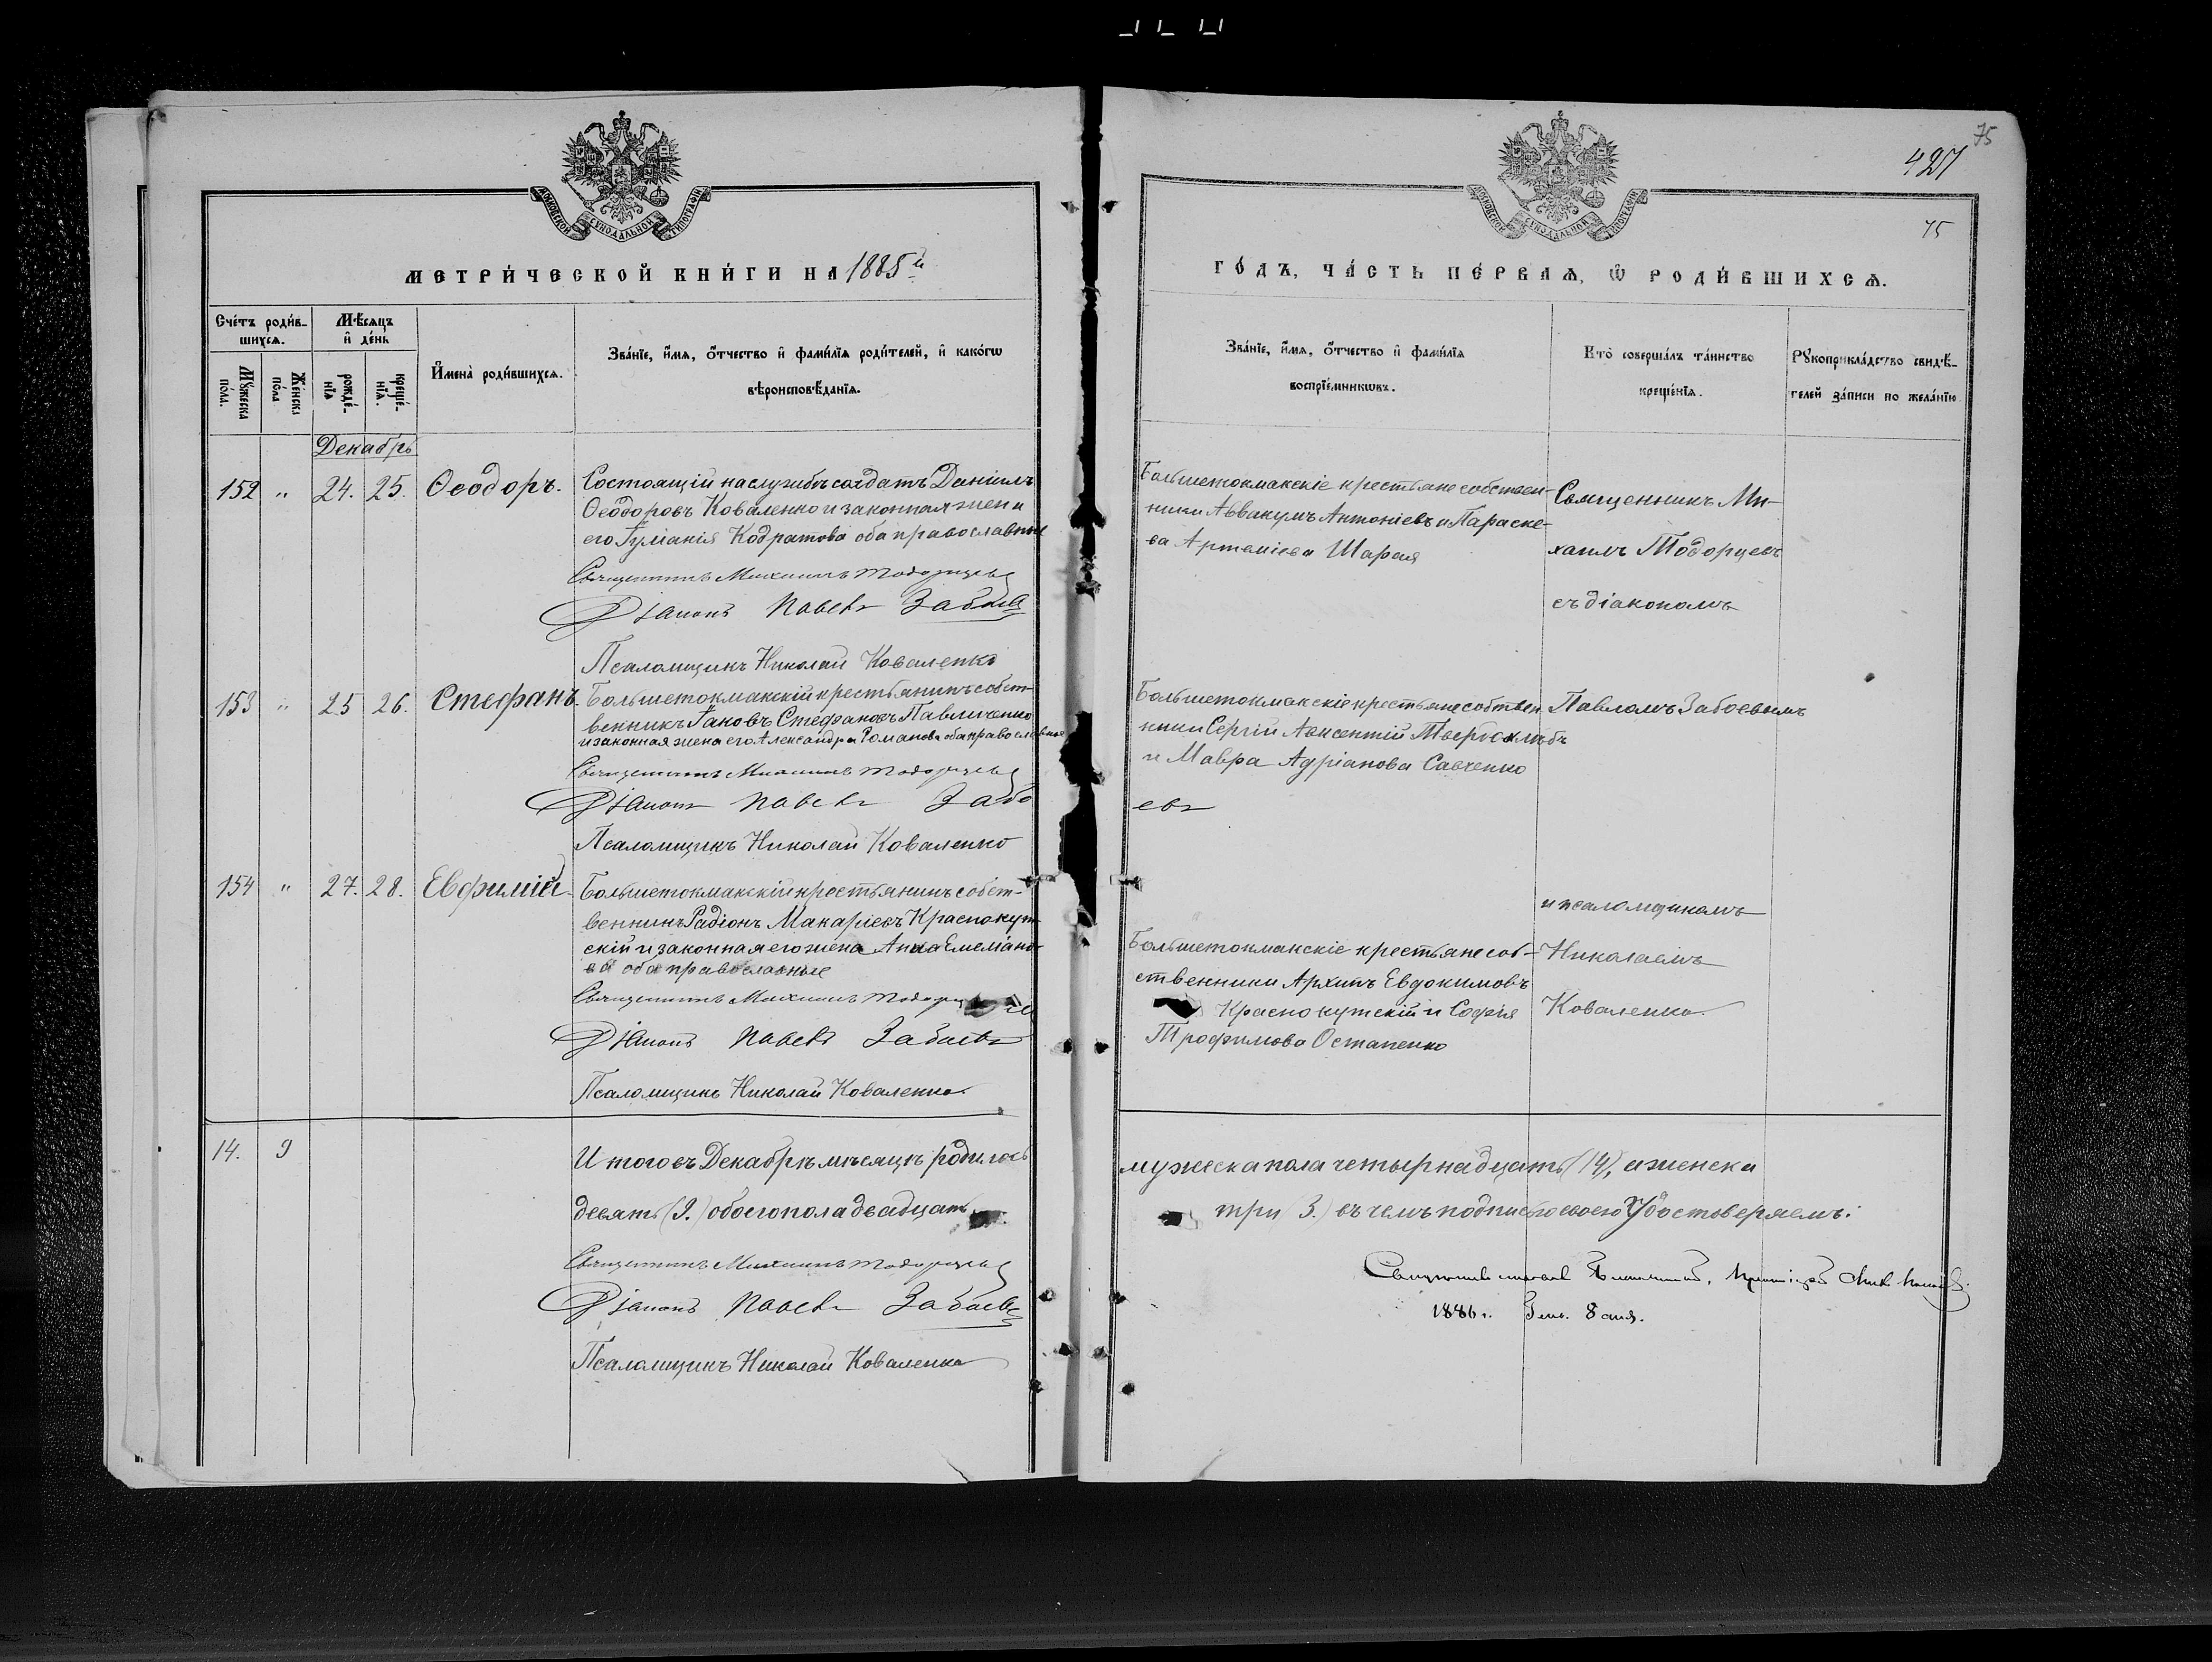 75
427
75
МОСКОВСКОЙ СУНОДАЛЬНОЙ ТИПОГРАФІИ
МЕТРИ́ЧЕСКОЙ КНИ́ГИ НА 1885й
Сче́тъ роди́в-
шихсѧ.
Мѣ́сяцъ
и҆ де́нь
Мꙋ́жеска
по́ла.
Же́нска
по́ла
рожде́-
нїѧ
креще́-
нїѧ.
И҆мена̀ роди́вшихсѧ.
Зва́нїе, и҆́мѧ, ѻ҆́тчество и҆ фами́лїѧ роди́телей, и҆ како́гѡ
вѣроисповѣ́данїѧ.
Декабрь
152 " 24. 25. Ѳеодоръ.
Состоящій на службѣ солдатъ Даніилъ
Ѳеодоровъ Коваленко и законная жена
его Іуліанія Кодратова оба православные
Священникъ Михаилъ Тодорцевъ
Діаконъ Павелъ Забоевъ
Псаломщикъ Николай Коваленко
153 " 25 26. Стефанъ.
Большетокмакскій крестьянинъ собст-
венникъ Іаковъ Стефановъ Павличенко
и законная жена его Александра Романова оба православные
Священникъ Михаилъ Тодорцевъ
Діаконъ Павелъ Забо
Псаломщикъ Николай Коваленко
154 " 27. 28. Евфимій
Большетокмакскій крестьянинъ собст-
венникъ Радіонъ Макаріевъ Краснокут-
скій и законная его жена Анна Емеліано-
ва оба православные
Священникъ Михаилъ Тодорцевъ
Діаконъ Павелъ Забоевъ
Псаломщикъ Николай Коваленко
14. 9
Итого въ Декабрѣ мѣсяцѣ родилось
девять (9.) обоего пола двадцать
Священникъ Михаилъ Тодорцевъ
Діаконъ Павелъ Забоевъ
Псаломщикъ Николай Коваленко
МОСКОВСКОЙ СУНОДАЛЬНОЙ ТИПОГРАФІИ
ГО́ДЪ, ЧА́СТЬ ПЕ́РВАѦ, Ѽ РОДИ́ВШИХСѦ.
Зва́нїе, и҆́мѧ, ѻ҆́тчество и҆ фами́лїѧ
воспрїе́мникѡвъ.
Кто̀ соверша́лъ та́инство
креще́нїѧ.
Рꙋкоприкла́дство свидѣ́-
телей за́писи по жела́нїю
Большетокмакскіе крестьяне собствен-
ники Аввакумъ Антоніевъ и Параске-
ва Артеміева Шарая
Священникъ Ми-
хаилъ Тодорцевъ
съ діакономъ
Большетокмакскіе крестьяне собствен
ники Сергій Авксентій Твердохлѣбъ
и Мавра Адріанова Савченко
Павломъ Забоевымъ
евъ
и псаломщикомъ
Большетокмакскіе крестьяне соб-
ственники Архипъ Евдокимовъ
Краснокутскій и Софія
Трофимова Остапенко
Николаемъ
Коваленко.
мужеска пола четырнадцать (14), а женска
три 3.) въ чемъ подписью своею удостоверяемъ:
1886 г. 8 дня.